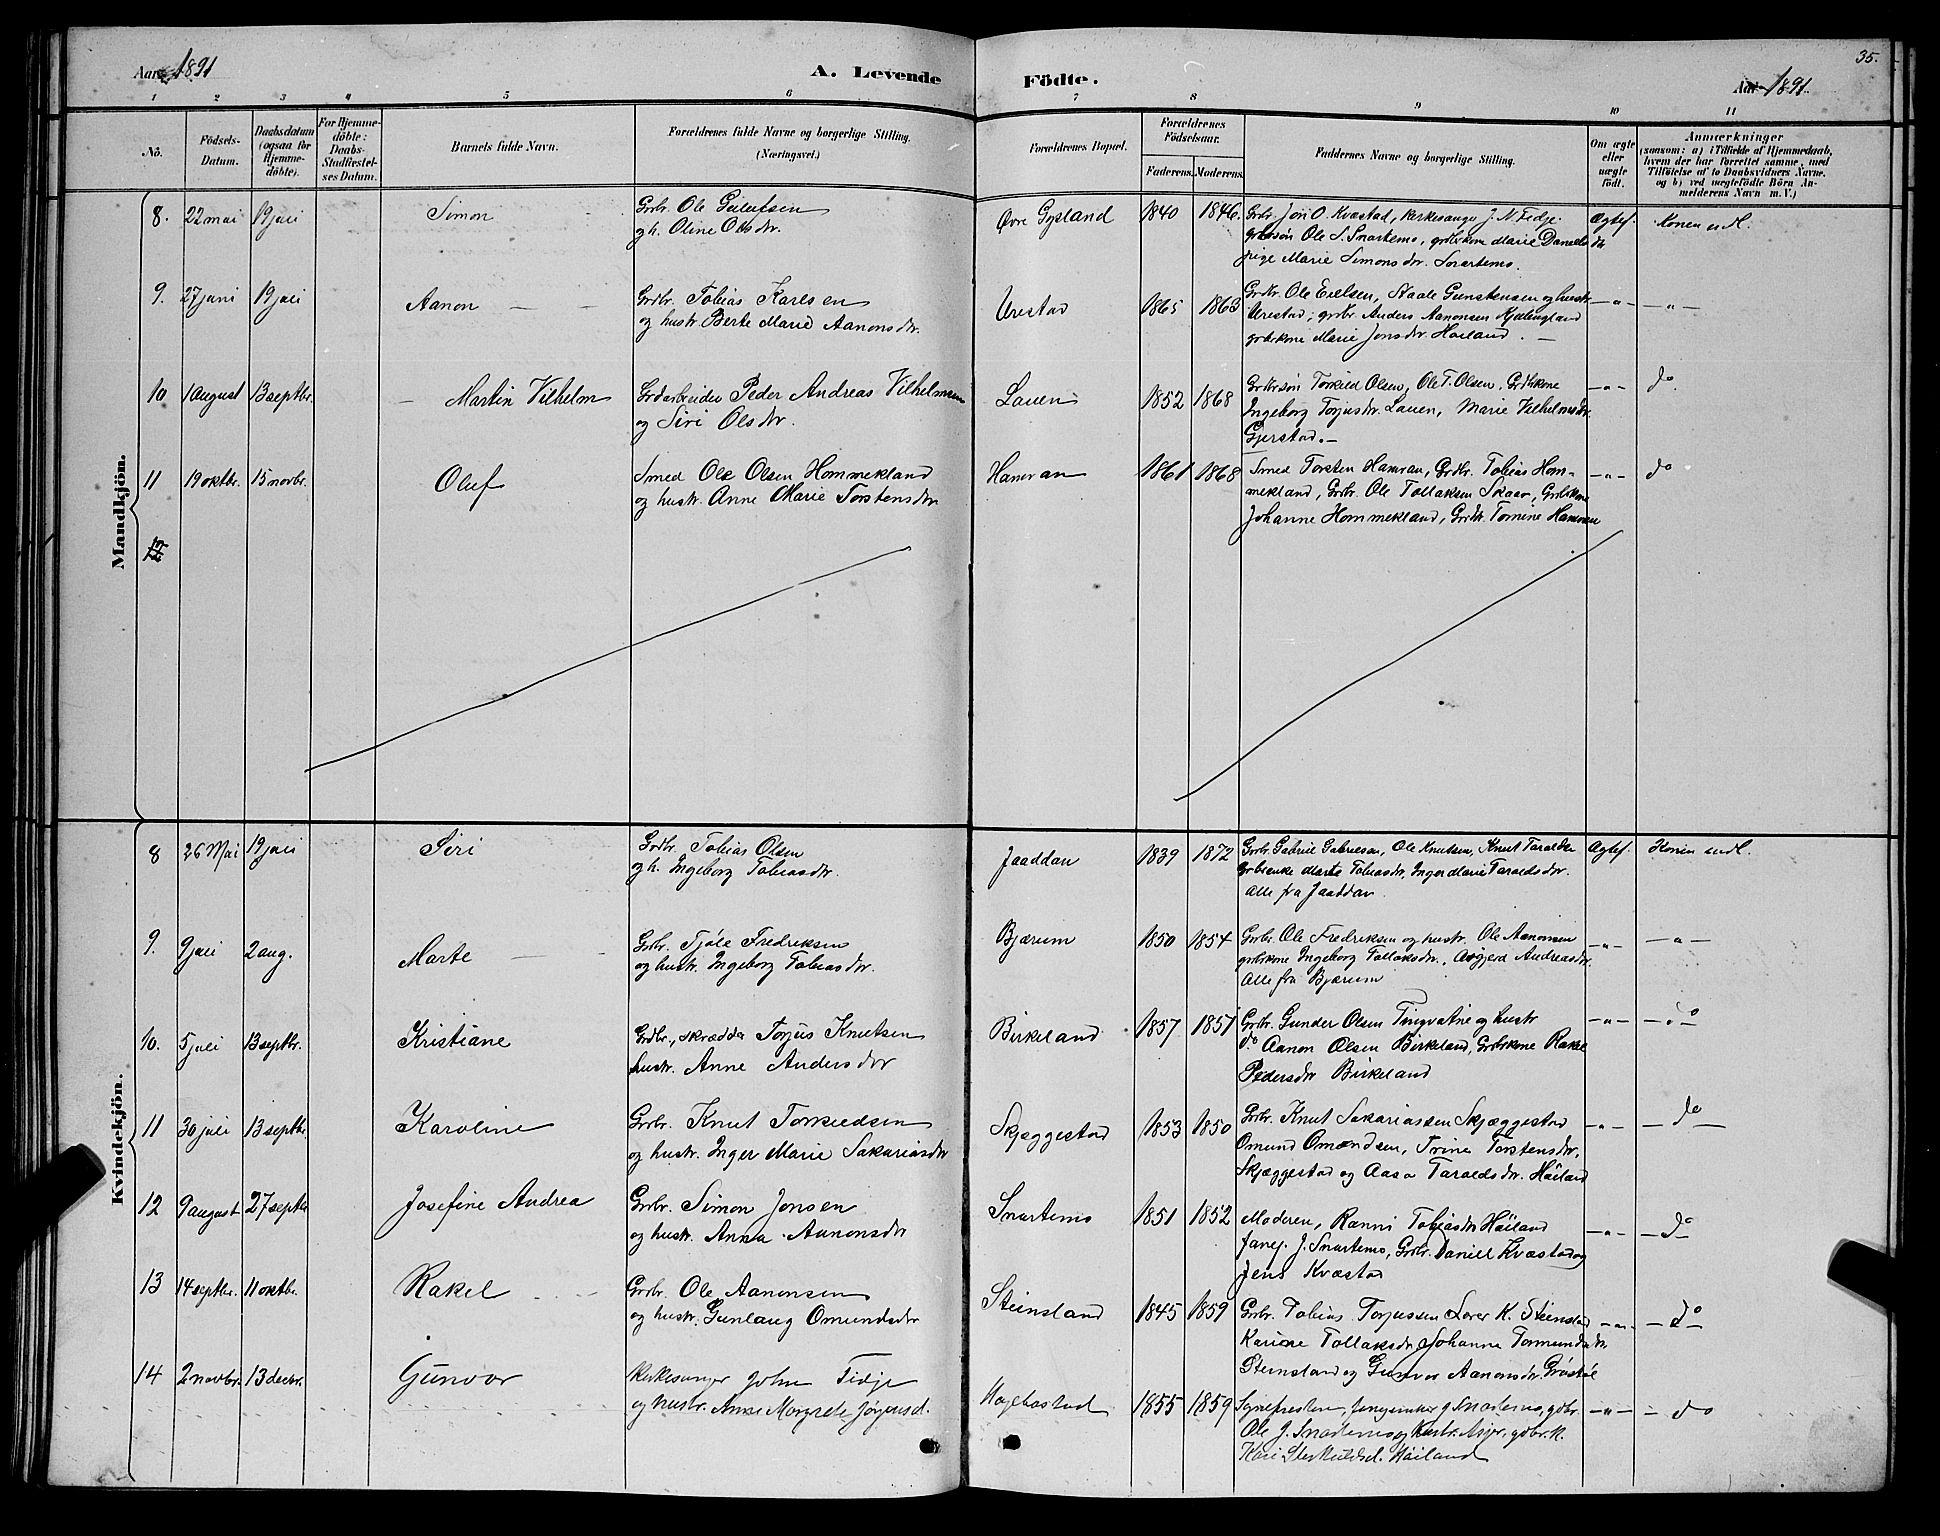 Aar 1891
A. Levende Födte.
Aar 1891.
35.
1 2 3 4 5 6 7 8 9 10 11
No.
Födsels-Datum.
Daabsdatum (ogsaa for Hjemme-döbte).
For Hjemme-döbte: Daabs-Stadfæstel-ses Datum.
Barnets fulde Navn.
Forældrenes fulde Navne og borgerlige Stilling. (Næringsvei.)
Forældrenes Bopæl.
Forældrenes Födselsaar.
Faderens. Moderens.
Faddernes Navne og borgerlige Stilling.
Om ægte eller uægte födt.
Anmærkninger
(saasom: a) i Tilfælde af Hjemmedaab, hvem der har forrettet samme, med Tilföielse af to Daabsvidners Navne. og b) ved uægtefödte Börn An-melderens Navn m. V.)
Mandkjön.
8. 22 mai 19 juli Simon
Grbr. Ole
og h. Oline Olsdtr.
Øvre Gysland 1840 1846.
Grbr. Jon O. Kvæstad, kirkesanger J. N. Fidje.
grbrsøn Ole S. Snartemo, grdbrkone Marie Danielsdtr
pige Marie Simonsdtr. Snartemo.
Ægtef. Konen indl.
9. 27 juni 19 juli Aanon
Grdbr. Tobias Karlsen
og hustr. Berte Marie Aanonsdtr.
Urestad 1865 1863
Grdbr. Ole Eielsen, Staale Gunstensen og hustr.
Urestad; grbr. Anders Aanonsen
grbrkone Marie Jonsdtr Høiland.
— " — — " —
10 1 august 13 septbr. Martin Vilhelm
Grdarbeider Peder Andreas Vilhelmsen
og Siri Olsdtr.
Lauen 1852 1868
Grbrsøn Torkild Olsen, Ole T. Olsen, Grdbkone
Ingeborg Torjusdtr. Lauen, Marie Vilhelmsdtr.
Gjerstad.—
— " — do
11 19 oktbr. 15 novbr. Oluf
Smed Ole Olsen Hommekland
og hustr. Anne Marie Torstensdtr
Hamran 1861 1868
Smed Torsten Hamran, Grdbr. Tobias Hom-
mekland, Grbr. Ole Tollaksen Skaar, Grbrkone
Johanne Hommekland, Grdbr. Tomine Hamran
— " — do
Kvindekjön.
8 26 Mai 19 juli Siri
Grdbr. Tobias Olsen
og h. Ingeborg Tobiasdtr.
Jaaddan 1839 1872
Grbr. Gabriel Gabrielsen, Ole Knutsen, Knut Taraldsen
Grbrenke Marte Tobiasdtr, Inger Marie Taraldsdtr.
Alle fra Jaaddan
Ægtef. Konen indl.
9. 9 juli 2 aug. Marte
Grbr. Tjøle Fredriksen
og hustr. Ingeborg Tobiasdtr.
Bjærum 1850 1854
Grbr. Ole Fredriksen og hustr. Ole Aanonsen
grbrkone Ingeborg Tollaksdtr., Asgjerd Andreasdtr.
Alle fra Bjærum
— " — — " —
10. 5 juli 13 septbr. Kristiane
Grdbr., skrædder Torjus Knutsen
hustr. Anne Andersdtr
Birkeland 1857 1851
Grbr. Gunder Olsen Tingvatne og hustr
do Aanon Olsen Birkeland, Grbrkone Rakel
Pedersdtr Birkeland
— " — do
11 30 juli 13 septbr. Karoline
Grbr. Knut Torkildsen
og hustr. Inger Marie Sakariasdtr
Skjæggestad 1853 1850
Grbr. Knut Sakariassen Skjæggestad
Omund Omandsen, Trine Torstensdtr.
Skjæggestad og Aasa Taraldsdtr. Høiland
— " — do
12 9 august 27 septbr Josefine Andrea
Grbr. Simon Jonsen
og hustr. Anna Aanonsdtr
Snartemo 1851 1852
Moderen, Ranni Tobiasdtr Høiland
J. Snartemo, Grbr. Daniel Kvæstad og
Jens Kvæstad
— " — do
13 14 septbr. 11 oktbr. Rakel
Grbr. Ole Aanonsen
og hustr. Gunlaug Omundsdtr
Steinsland 1845 1859
Grbr. Tobias Torjussen, Lorer K. Steinsland
Karine Tollaksdtr, Johanne Tormundsdtr.
Steinsland og Gunvor Aanonsdtr.
— " — do
14 2 novbr. 13 decbr. Gunvor
Kirkesanger John Fidje
og hustr. Anne Margrete Jørgensd.
Hægebostad 1855 1859
Sognepresten, J. Snartemo, gdbr.
Ole J. Snartemo og hustr. gdbr.k.
Kari Høiland
— " — do